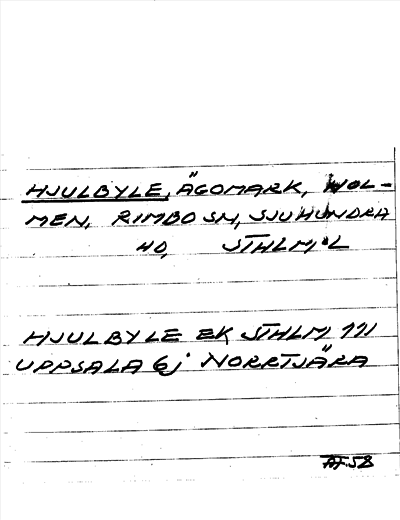 HJULBYLE, ÄGOMARK, HOL-
MEN, RIMBO SN, SJUHUNDRA
HD, STHLM L
HJULBYLE EK STHLM 111
UPPSALA 6j NORRTSJÄRA
AF. 58